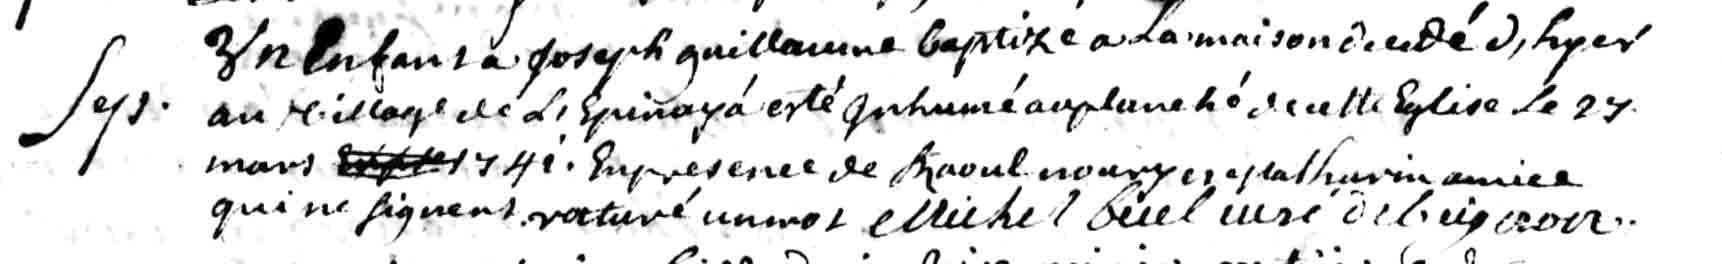 Un Enfant a Joseph guillaume baptizé a La maison decedé d, hyer
Sep. au village de L'Epinay á esté Inhumé auplanché decette Eglise Le 27
mars 1741. Enpresence de Raoul noury et Mathurin amice
qui ne signent raturé unmot Michel Buel curé de